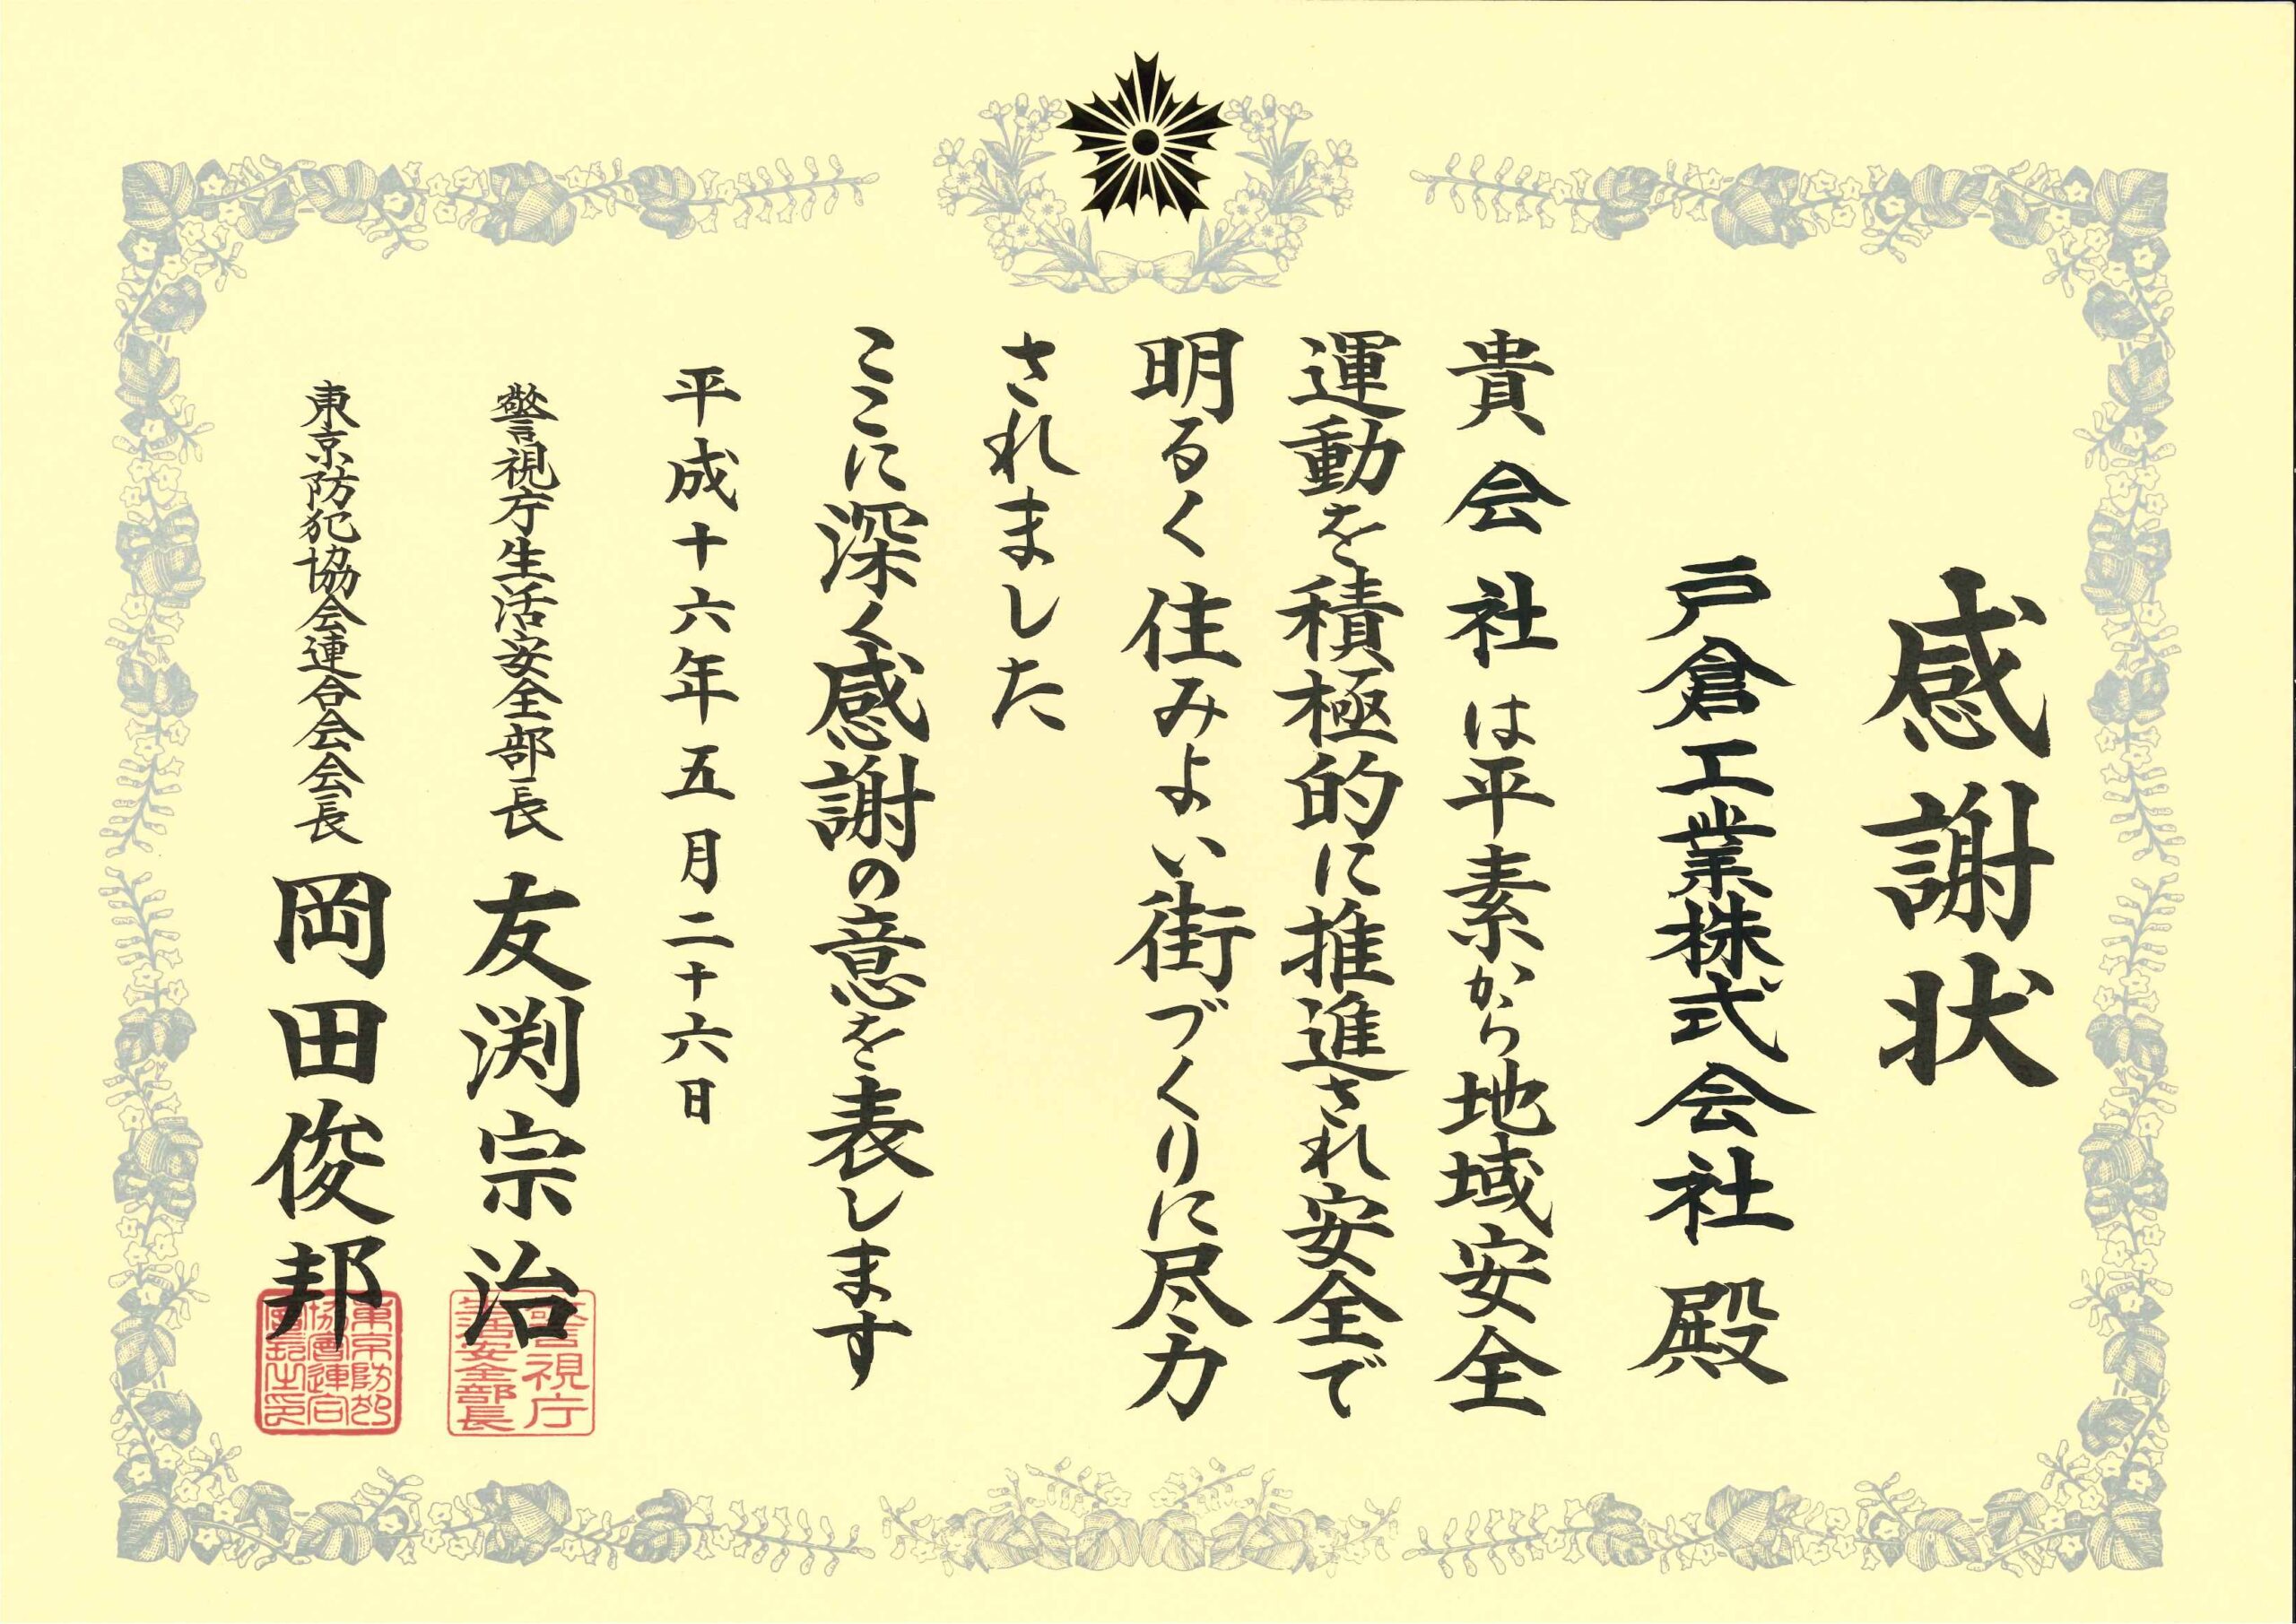 感謝状
戸倉工業株式会社 殿
貴会社は平素から地域安全
運動を積極的に推進され安全で
明るく住みよい街づくりに尽力
されました
ここに深く感謝の意を表します
平成十六年五月二十六日
警視庁生活安全部長 友渕宗治
東京防犯協会連合会会長 岡田俊邦
警視庁
生活安全部長
東京防犯
協會連合
會長之印